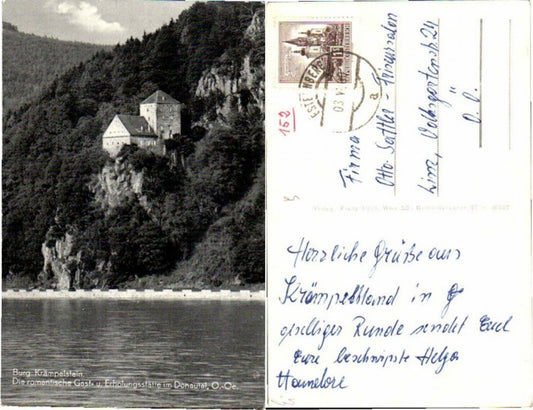 Burg Krämpelstein.
Die romantische Gast- u. Erholungsstätte im Donautal, O.-Oe.
152
Firma
Otto Sattler
Linz, Volksgartenstr 24
O. Ö.
Herzliche Grüße aus
Krämpelstand in
geselliger Runde sendet Euch
Eure beschwipste Helga
Hannelore